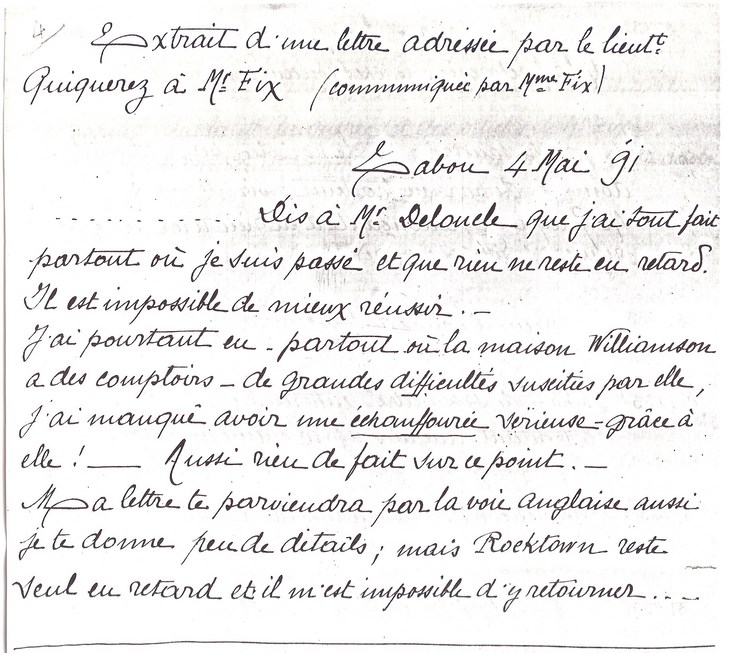 4/
Extrait d'une lettre adressée par le lieutt
Quiquerez à Mr Fix (communiquée par Mme Fix)
Tabou 4 Mai 91
.............. Dis à Mr Deloncle que j'ai tout fait
partout où je suis passé et que rien ne reste en retard.
Il est impossible de mieux réussir. _
J'ai pourtant eu - partout où la maison Williamson
a des comptoirs - de grandes difficultés suscitées par elle,
j'ai manqué avoir une échauffourée sérieuse = grâce à
elle ! __ Aussi rien de fait sur ce point. _
Ma lettre te parviendra par la voie anglaise aussi
je te donne peu de détails ; mais Rocktown reste
seul en retard et il m'est impossible d'y retourner....